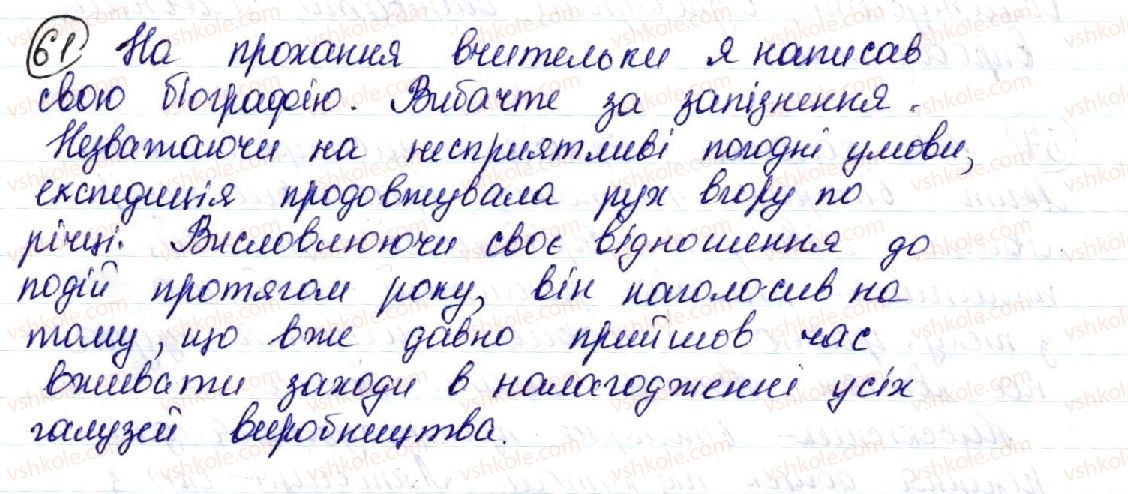 61 На прохання вчительки я написав
свою біографію. Вибачте за запізнення.
Незважаючи на несприятливі погодні умови,
експедиція продовжувала рух вгору по
річці. Висловлюючи своє відношення до
подій протягом року, він наголосив на
тому, що вже давно прийшов час
вживати заходи в налагодженні усіх
галузей виробництва.